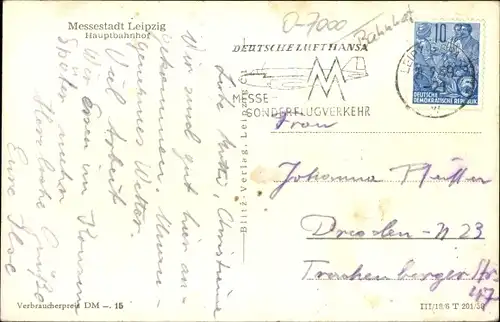 Messestadt Leipzig
Hauptbahnhof
O-7000
Bahnhof
DEUTSCHE LUFTHANSA
MM
MESSE
SONDERFLUGVERKEHR
10
DEUTSCHE
DEMOKRATISCHE REPUBLIK
LEIPZIG
Liebe Mutti, Christine
Wir sind gut hier an-
gekommen. Unan-
genehmes Wetter.
Viel Arbeit
Wir Essen im
Später mehr
Herzliche Grüße
Eure Ilse
Blitz-Verlag, Leipzig
Frau
Johanna Pfeiffer
Dresden-N 23
Trachenberger Str
47
Verbraucherpreis DM -. 15
III/18/6 T 201/59